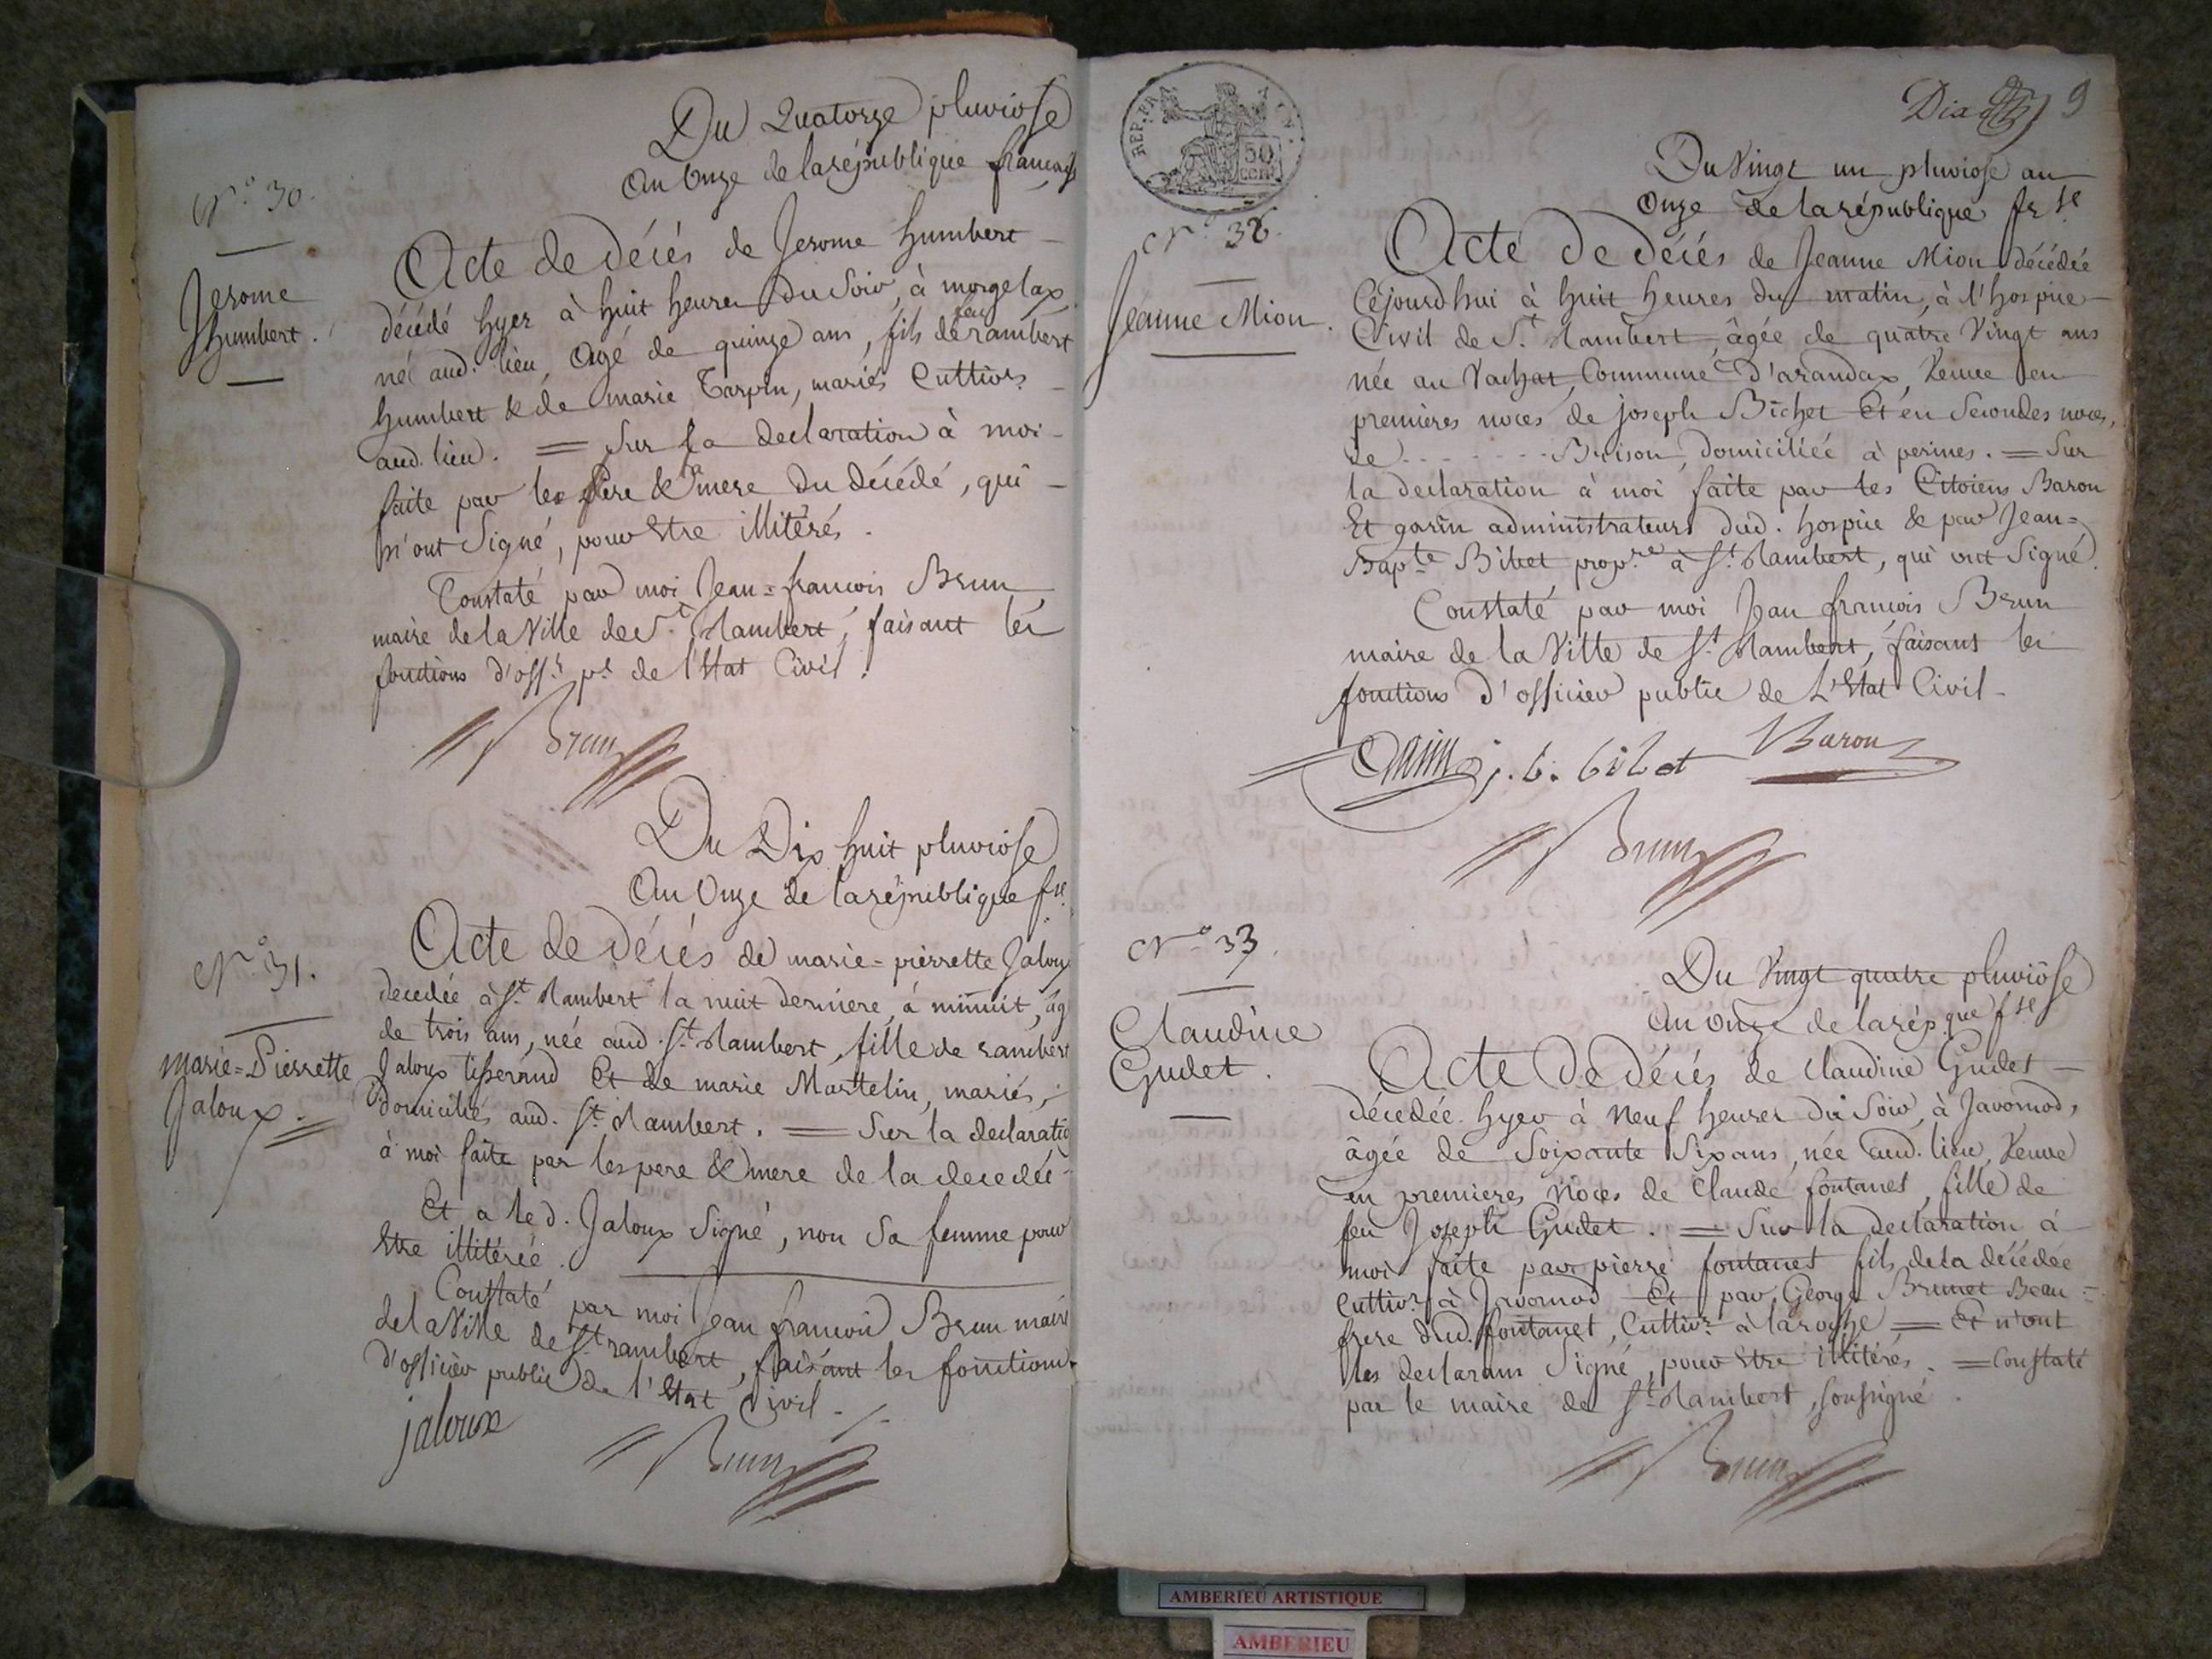 Du Quatorze pluviose
an Onze de la république français
N.° 30.
Jerome
humbert.
Acte de décés de Jerome humbert
décédé hyer à huit heures du Soir, à morgelax
né aud. lieu, Agé de quinze ans, fils de feu rambert
humbert & de marie Tarpin, mariés Cultivrs
aud. lieu. = Sur la declaration à moi
faite par les Pere & mere du décédé, qui
n'ont Signé, pour Etre illitérés.
Constaté par moi Jean=francois Brun
maire de la Ville de St. Rambert, faisant les
fonctions d'offr. pc. de l'Etat Civil.
Brun
Du Dix huit pluviôse
An Onze de la république fse.
N.° 31.
marie=Pierrette
Jaloux.
Acte de décés de marie=pierrette Jaloux
decedée à St. Rambert la nuit derniere, à minuit, ag
de trois ans, née aud. St. Rambert, fille de rambert
Jaloux tisserand Et de marie Martelin, mariés,
domiciliés aud. St. Rambert. = Sur la declaratio
à moi faite par les pere & mere de la decedée
Et a led. Jaloux Signé, non Sa femme pour
Etre illitérée.
Constaté par moi Jean francois Brun maire
de la Ville de St. rambert, faisant les fonctions
d'officier public de l'Etat Civil.
jaloux
Brun
9
REP. FRA.
50
CENT
Du Vingt un pluviose an
Onze de la république frse
N.° 32.
Jeanne Mion.
Acte de décés de Jeanne Mion décédée
Cejourdhui à huit heures du matin, à l'hospice
Civil de St. Rambert, âgée de quatre Vingt ans
née au Vachat, Commune d'arandax, Veuve en
premières noces de joseph Bichet Et en Secondes noces,
de . . . . . . . Brison, domiciliée à perines. = Sur
la declaration à moi faite par les Citoiens Baron
Et garin administrateurs dud. hospice & par Jean=
Bapte Bibet propre. à St. Rambert, qui ont Signé.
Constaté par moi Jean françois Brun
maire de la Ville de St. Rambert, faisant les
fonctions d'officier public de L'Etat Civil
j. b. bibet Baron
Brun
N.° 33.
Claudine
Gudet.
Du Vingt quatre pluviôse
An onze de la rép.que fse
Acte de décés de Claudine Gudet
décedée hyer à Neuf heures du Soir, à Javornod,
âgée de Soixante Six ans, née aud. lieu, Veuve
en premieres Noces de Claude fontanet, fille de
feu Joseph Gudet. = Sur la declaration à
moi faite par pierre fontanet fils de la décédée
Cultivr. à Javornod Et par George Brunet Beau=
frere dud. fontanet, Cultivr. à la roche = Et n'ont
les declarans Signé, pour Etre illitérés. = Constaté
par le maire de St. Rambert, soussigné.
Brun
AMBERIEU ARTISTIQUE
AMBERIEU